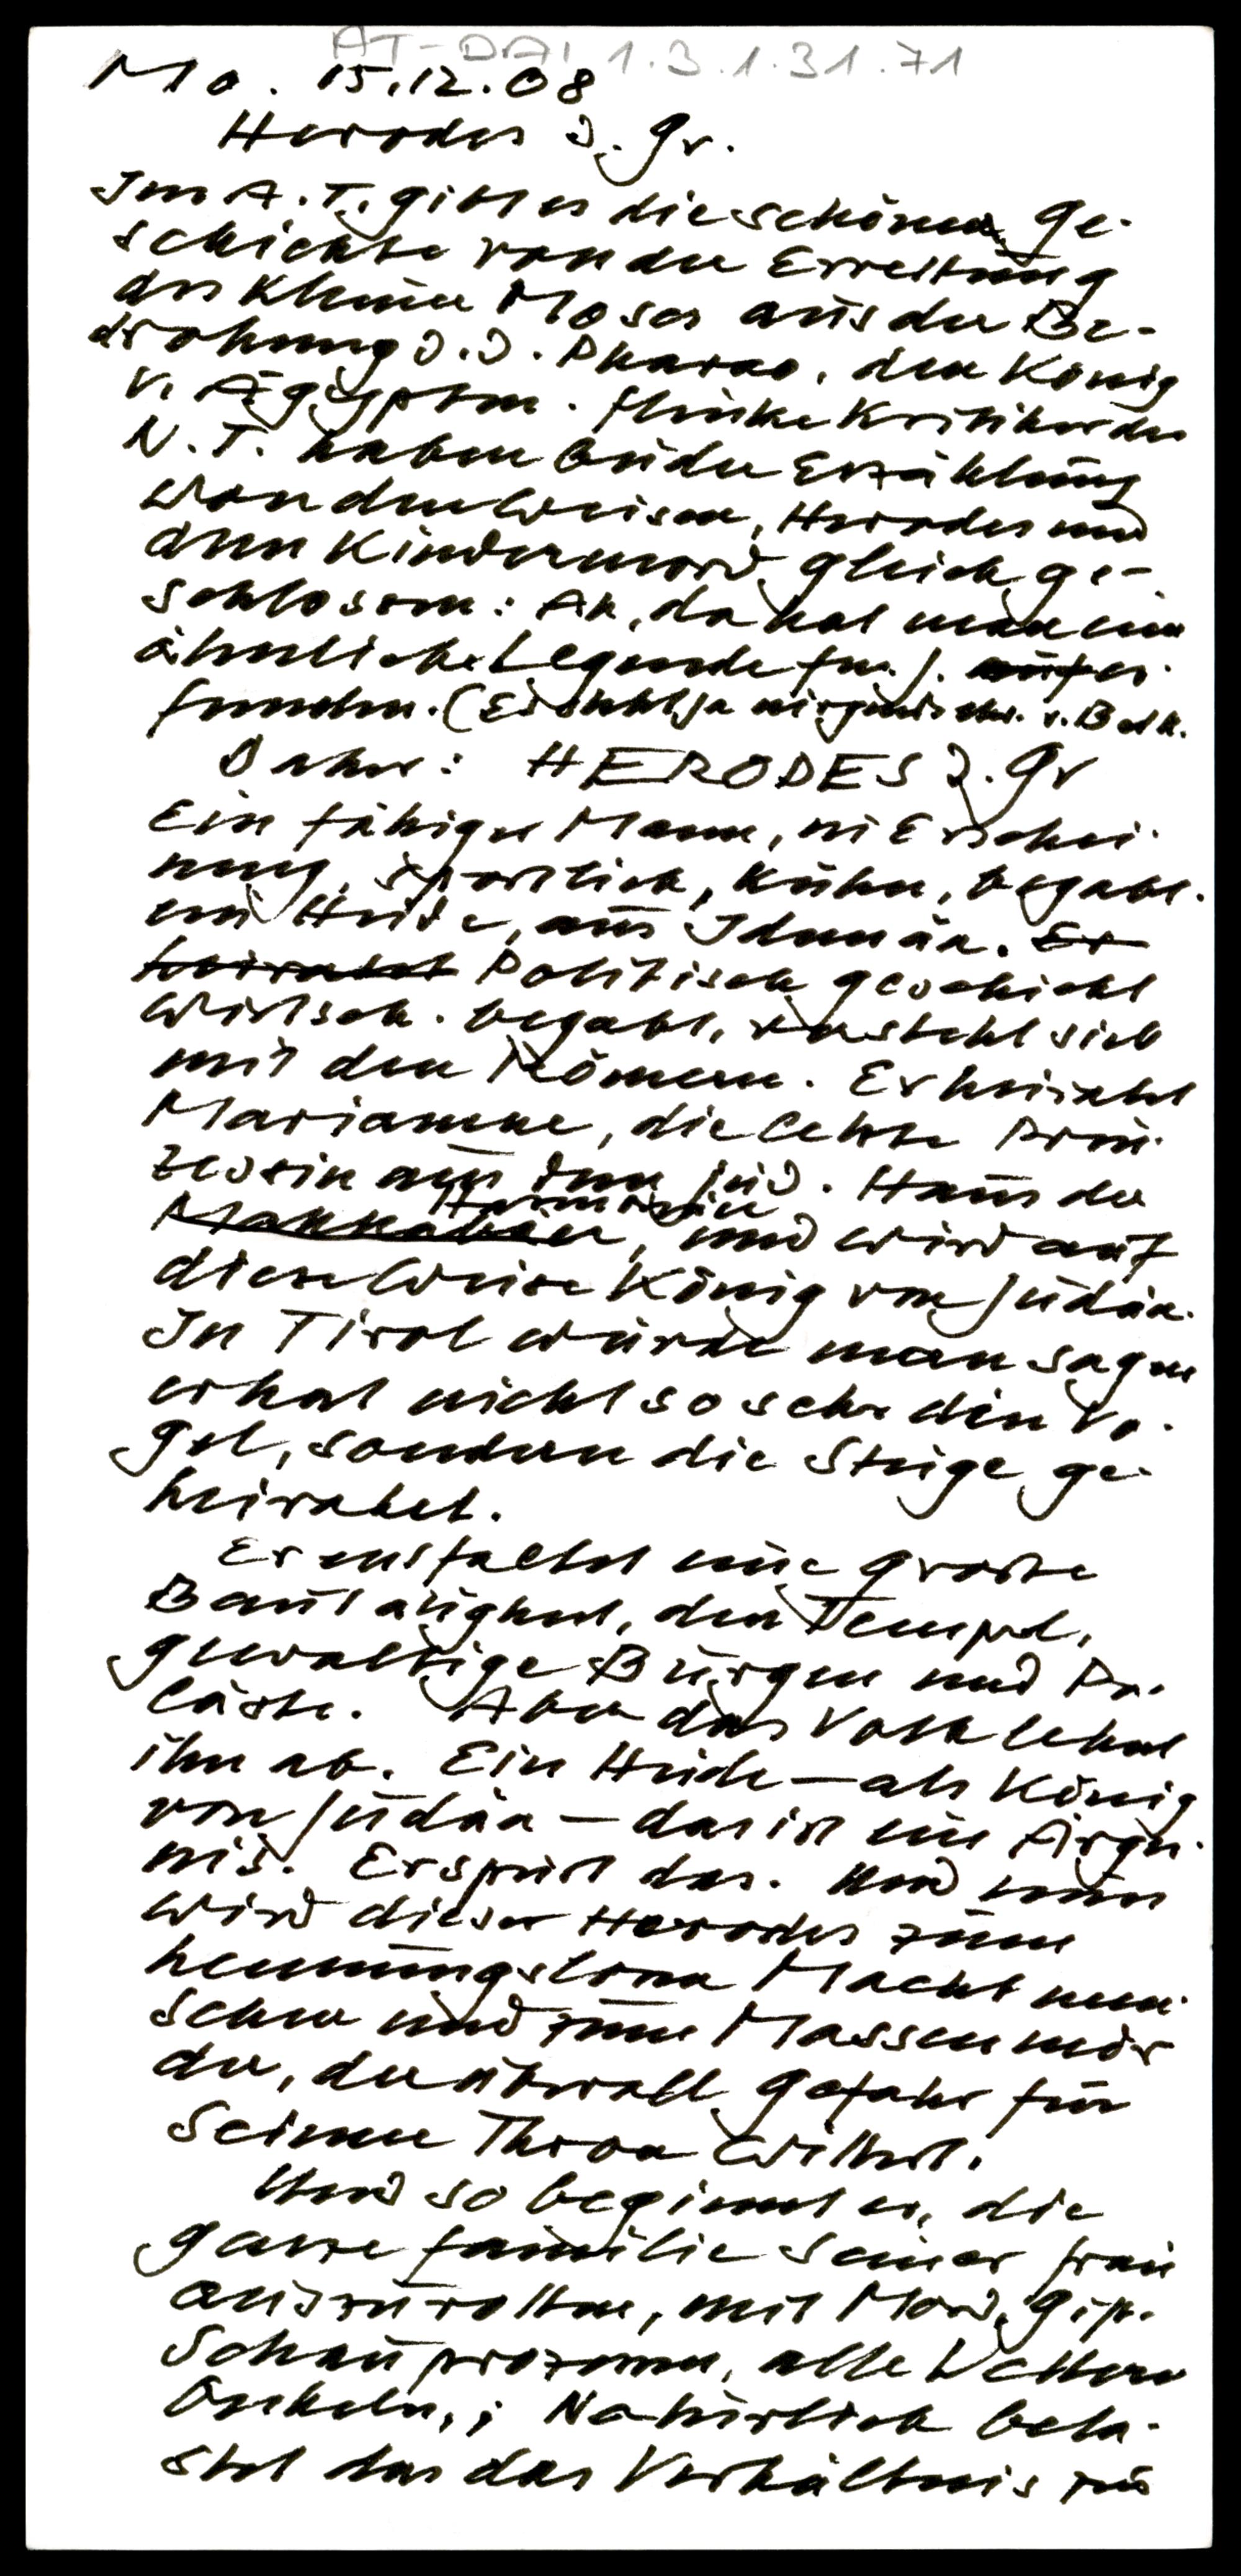 AT-DAI 1.3.1.31.71
Mo. 15.12.08
Herodes d. Gr.
Im A.T. gibt es die schöne Ge-
schichte von der Errettung
des kleinen Moses aus der Be-
drohung d. d. Pharao, den König
v. Ägypten. flinke Kritiker des
N.T. haben bei der Erzählung
von den Weisen, Herodes und
dem Kindermord gleich ge-
schlossen: Ah, da hat man eine
ähnliche Legende f. J. auf er-
funden. (Es steht ja nirgends etw. v. Beth.
Daher: HERODES d. Gr
Ein fähiger Mann, in Erschei-
nung, sportlich, kühn, begabt.
ein Heide, aus Idumäa. Er
heiratet Politisch geschickt
wirtsch. begabt, versteht sich
mit den Römern. Er heiratet
Mariamne, die letzte Prin-
zessin aus dem jüd. Haus der
Hasmonäer
Makkabäer, und wird auf
diese Weise König von Judäa.
In Tirol würde man sagen
er hat nicht so sehr den Vo-
gel, sondern die Steige ge-
heiratet.
Er entfaltet eine große
Bautätigkeit, den Tempel,
gewaltige Burgen und Pa-
läste. Aber das Volk lehnt
ihn ab. Ein Heide – als König
von Judäa – das ist ein Ärger-
nis. Er spürt das. Und nun
wird dieser Herodes zum
hemmungslosen Machtmen-
schen und zum Massenmör
der, der überall Gefahr für
seinen Thron wittert.
Und so beginnt er, die
ganze familie seiner frau
auszurotten, mit Mord, Gift.
Schauprozessen, alle Vettern
Onkeln,; Natürlich bela-
stet das das Verhältnis zu